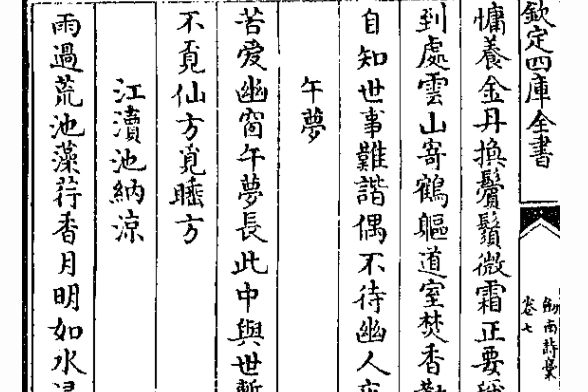 欽定四庫全書
劍南詩稾
卷七
慵養金丹換鬢鬚微霜正要
到處雲山寄鶴軀道室焚香勤
自知世事難諧偶不待幽人
午夢
苦爱幽窗午夢長此中與世暫
不覔仙方覔睡方
江瀆池納涼
雨過荒池藻荇香月明如水浸